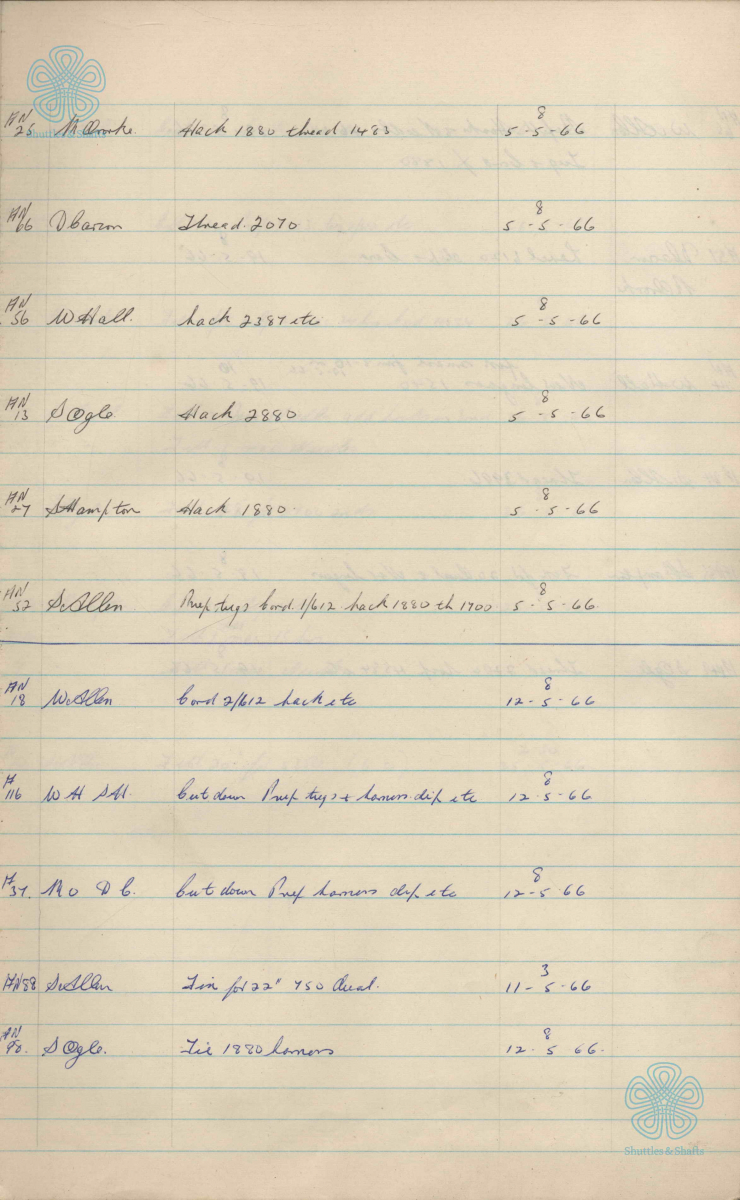 HN 25 M. O'Rourke. Hack 1880 thread 1483 8 5-5-66
HN 66 D Carson Thread 2070 8 5-5-66
HN 56 W Hall. hack 2387 etc 8 5-5-66
HN 13 S Ogle Hack 2880 8 5-5-66
HN 27 S Hampton Hack 1880 8 5-5-66
HN 52 S. Allen Prep tugs Cord 1/612 hack 1880 th 1700 8 5-5-66.
HN 18 W. Allen Cord 2/612 hack etc 8 12-5-66
H 116 W H S H. Cut down Prep tugs + harness dip etc 8 12-5-66
H 37. D C. Cut down Prep harness dip etc 8 12-5-66
HN 88 S. Allen for 22" 750 dual. 3 11-5-66
HN 98. S Ogle. Tie 1880 harness 8 12-5 66.
Shuttles & Shafts